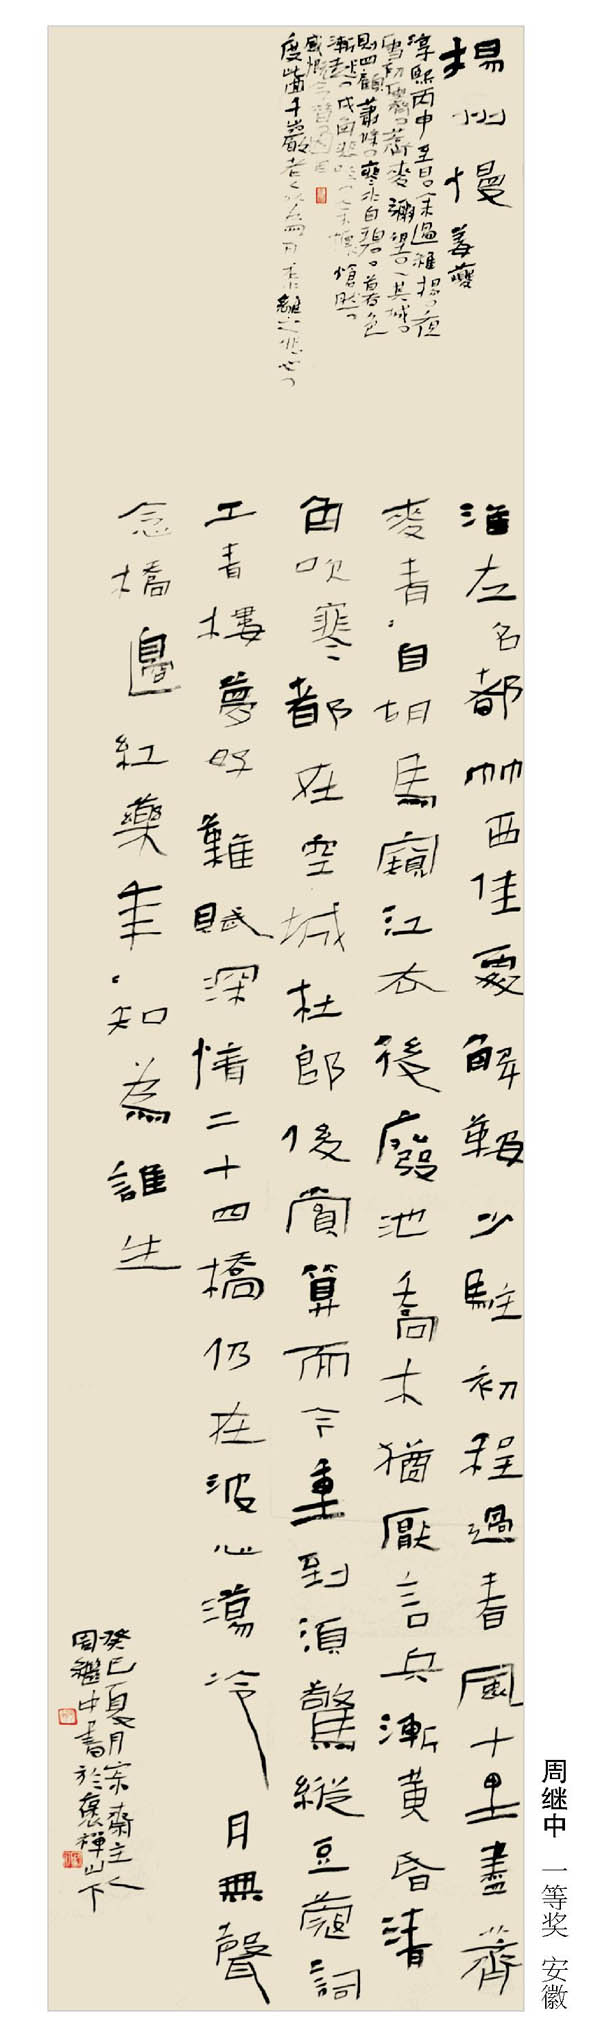 揚州慢 姜夔
淳熙丙申至日予過維揚夜
雪初霽薺麥彌望入其城
則四顧蕭條寒水自碧暮色
漸起戍角悲吟予懷愴然
感慨今昔因自
度此曲千巖老人以為有黍離之悲也
淮左名都竹西佳處解鞍少駐初程過春風十里盡薺
麥青〻自胡馬窺江去後廢池喬木猶厭言兵漸黃昏清
角吹寒〻都在空城杜郎俊賞算而今重到須驚縱豆蔻詞
工青樓夢好難賦深情二十四橋仍在波心蕩冷月無聲
念橋邊紅藥年〻知為誰生
癸巳夏月宗齋主人
周繼中書於褒禪山下
周继中 一等奖 安徽